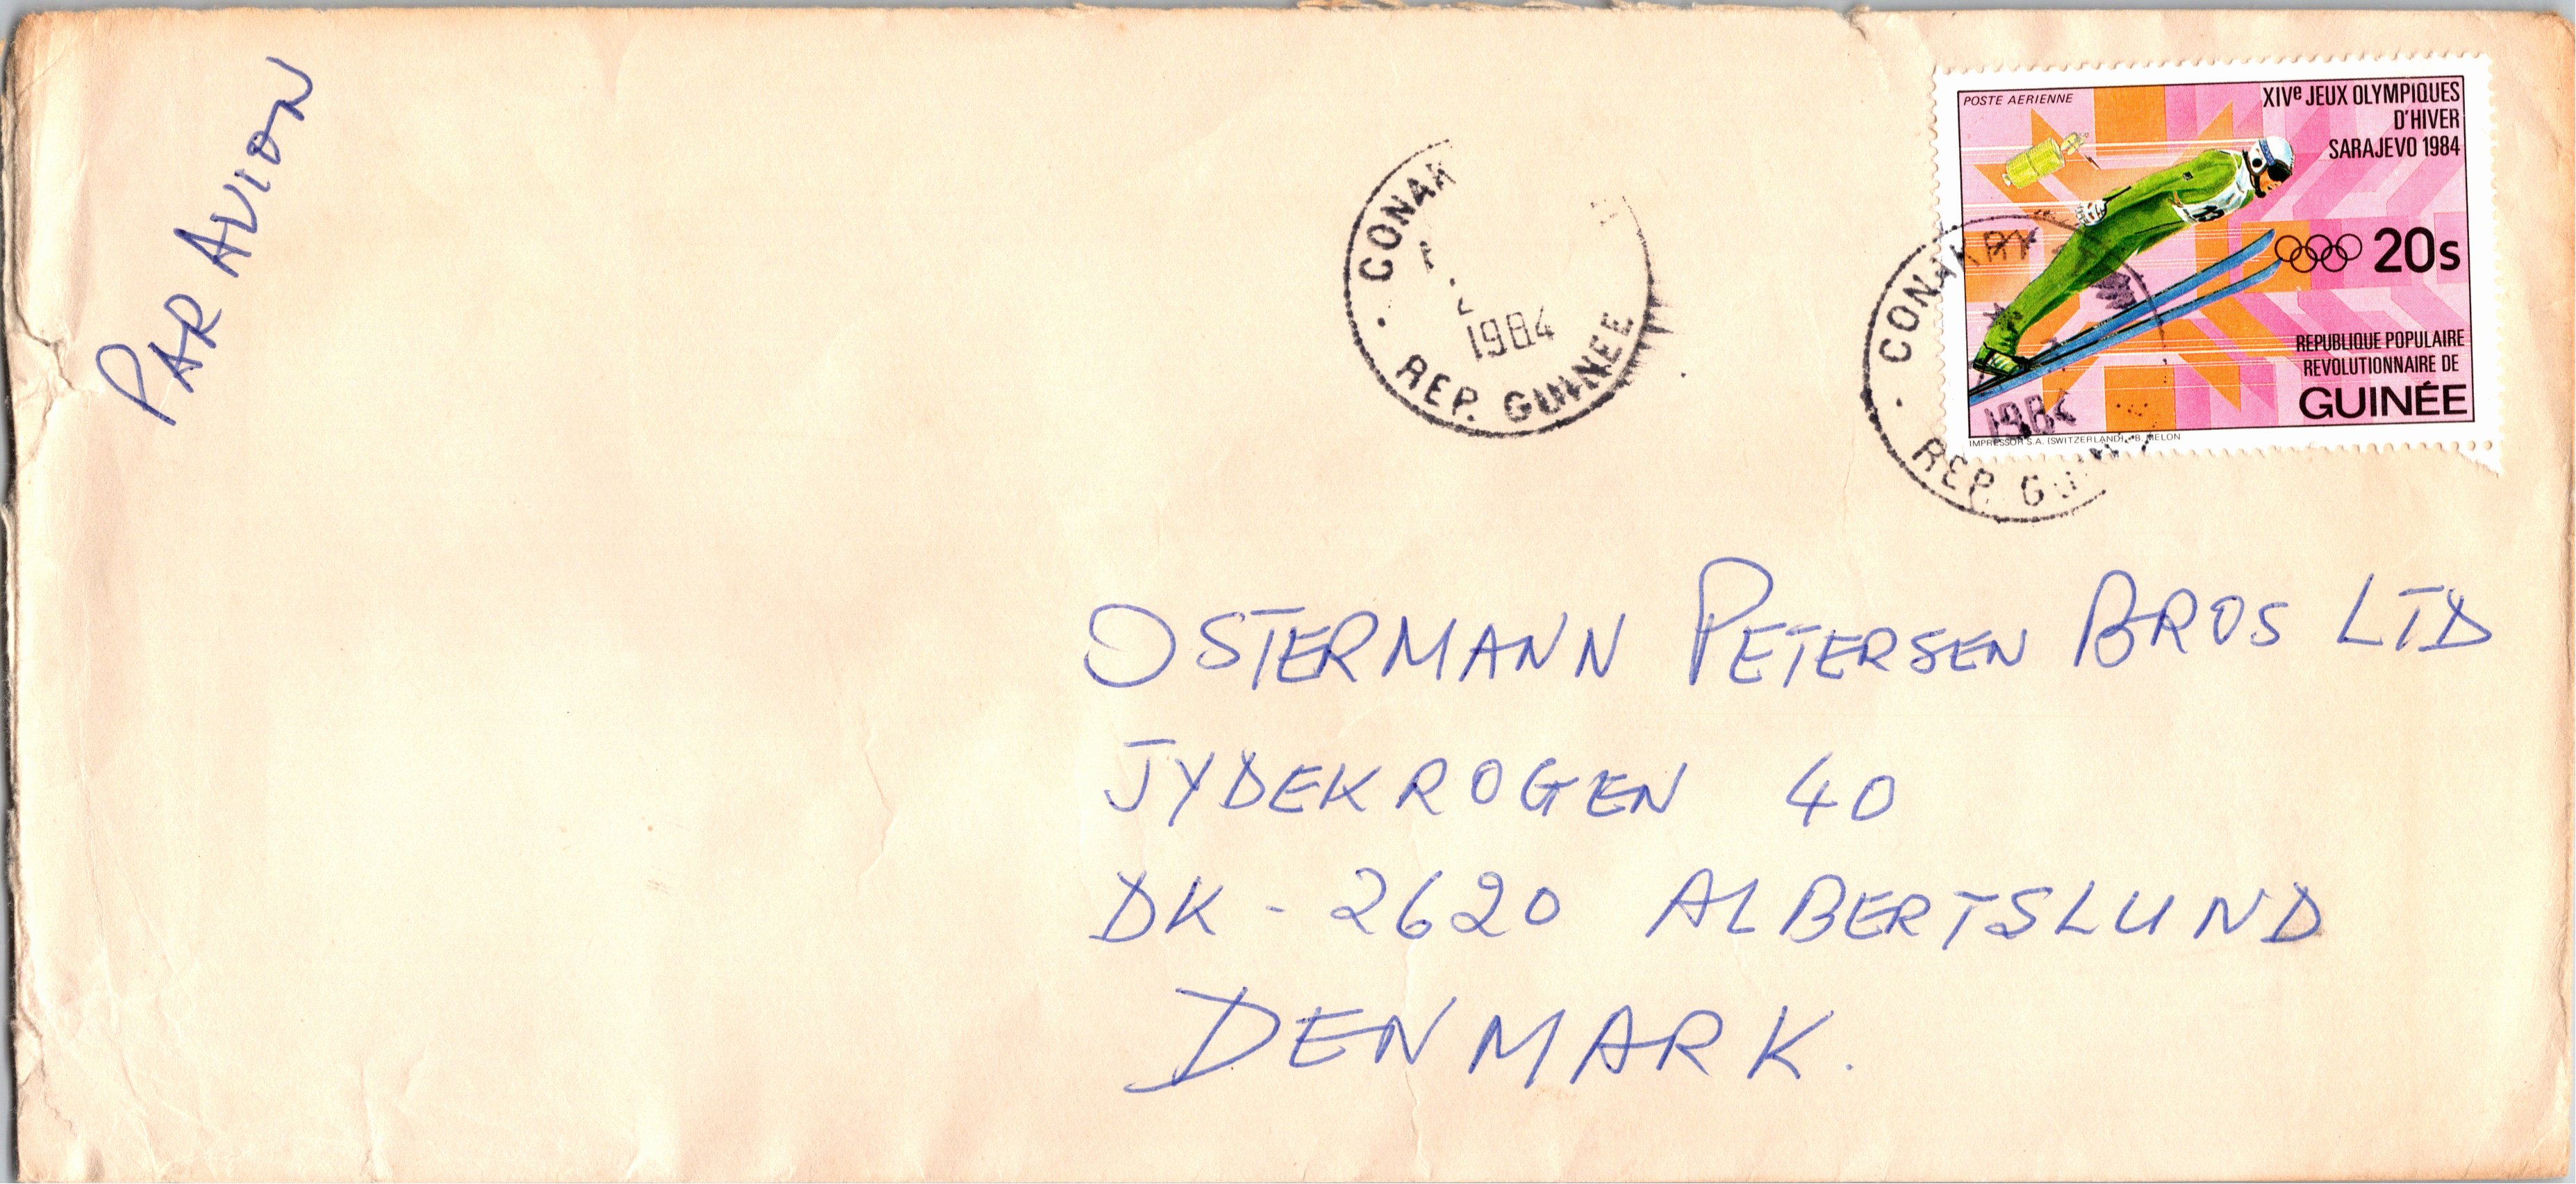 PAR AVION
POSTE AERIENNE
XIVe JEUX OLYMPIQUES
D'HIVER
SARAJEVO 1984
13
20s
REPUBLIQUE POPULAIRE
REVOLUTIONNAIRE DE
GUINÉE
IMPRESSOR S.A. (SWITZERLAND) - B. MELON
1984
REP. GUINEE
CONAKRY
1984
REP.
OSTERMANN PETERSEN BROS LTD
JYDEKROGEN 40
DK - 2620 ALBERTSLUND
DENMARK.